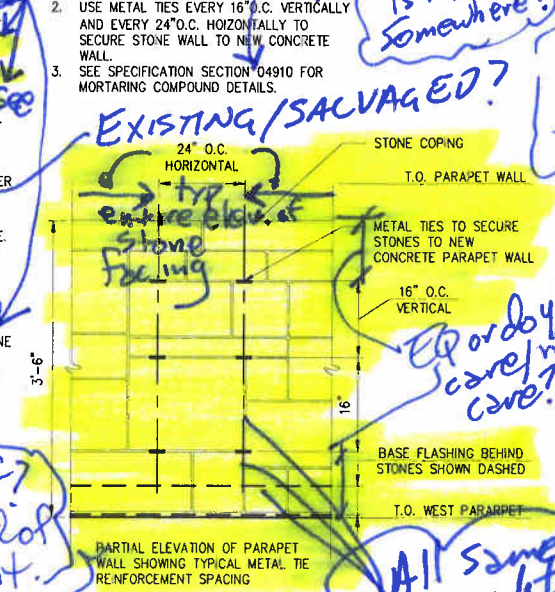 2. USE METAL TIES EVERY 16"O.C. VERTICALLY
AND EVERY 24"O.C. HOIZONTALLY TO
SECURE STONE WALL TO NEW CONCRETE
WALL.
3. SEE SPECIFICATION SECTION 04910 FOR
MORTARING COMPOUND DETAILS.
Somewhere?
See
EXISTING/SALVAGED?
24" O.C.
HORIZONTAL
typ
entire elev. of
stone
facing
STONE COPING
T.O. PARAPET WALL
METAL TIES TO SECURE
STONES TO NEW
CONCRETE PARAPET WALL
16" O.C.
VERTICAL
EQ or do
care?
3'-6"
16"
BASE FLASHING BEHIND
STONES SHOWN DASHED
T.O. WEST PARARPET
PARTIAL ELEVATION OF PARAPET
WALL SHOWING TYPICAL METAL TIE
REINFORCEMENT SPACING
All same